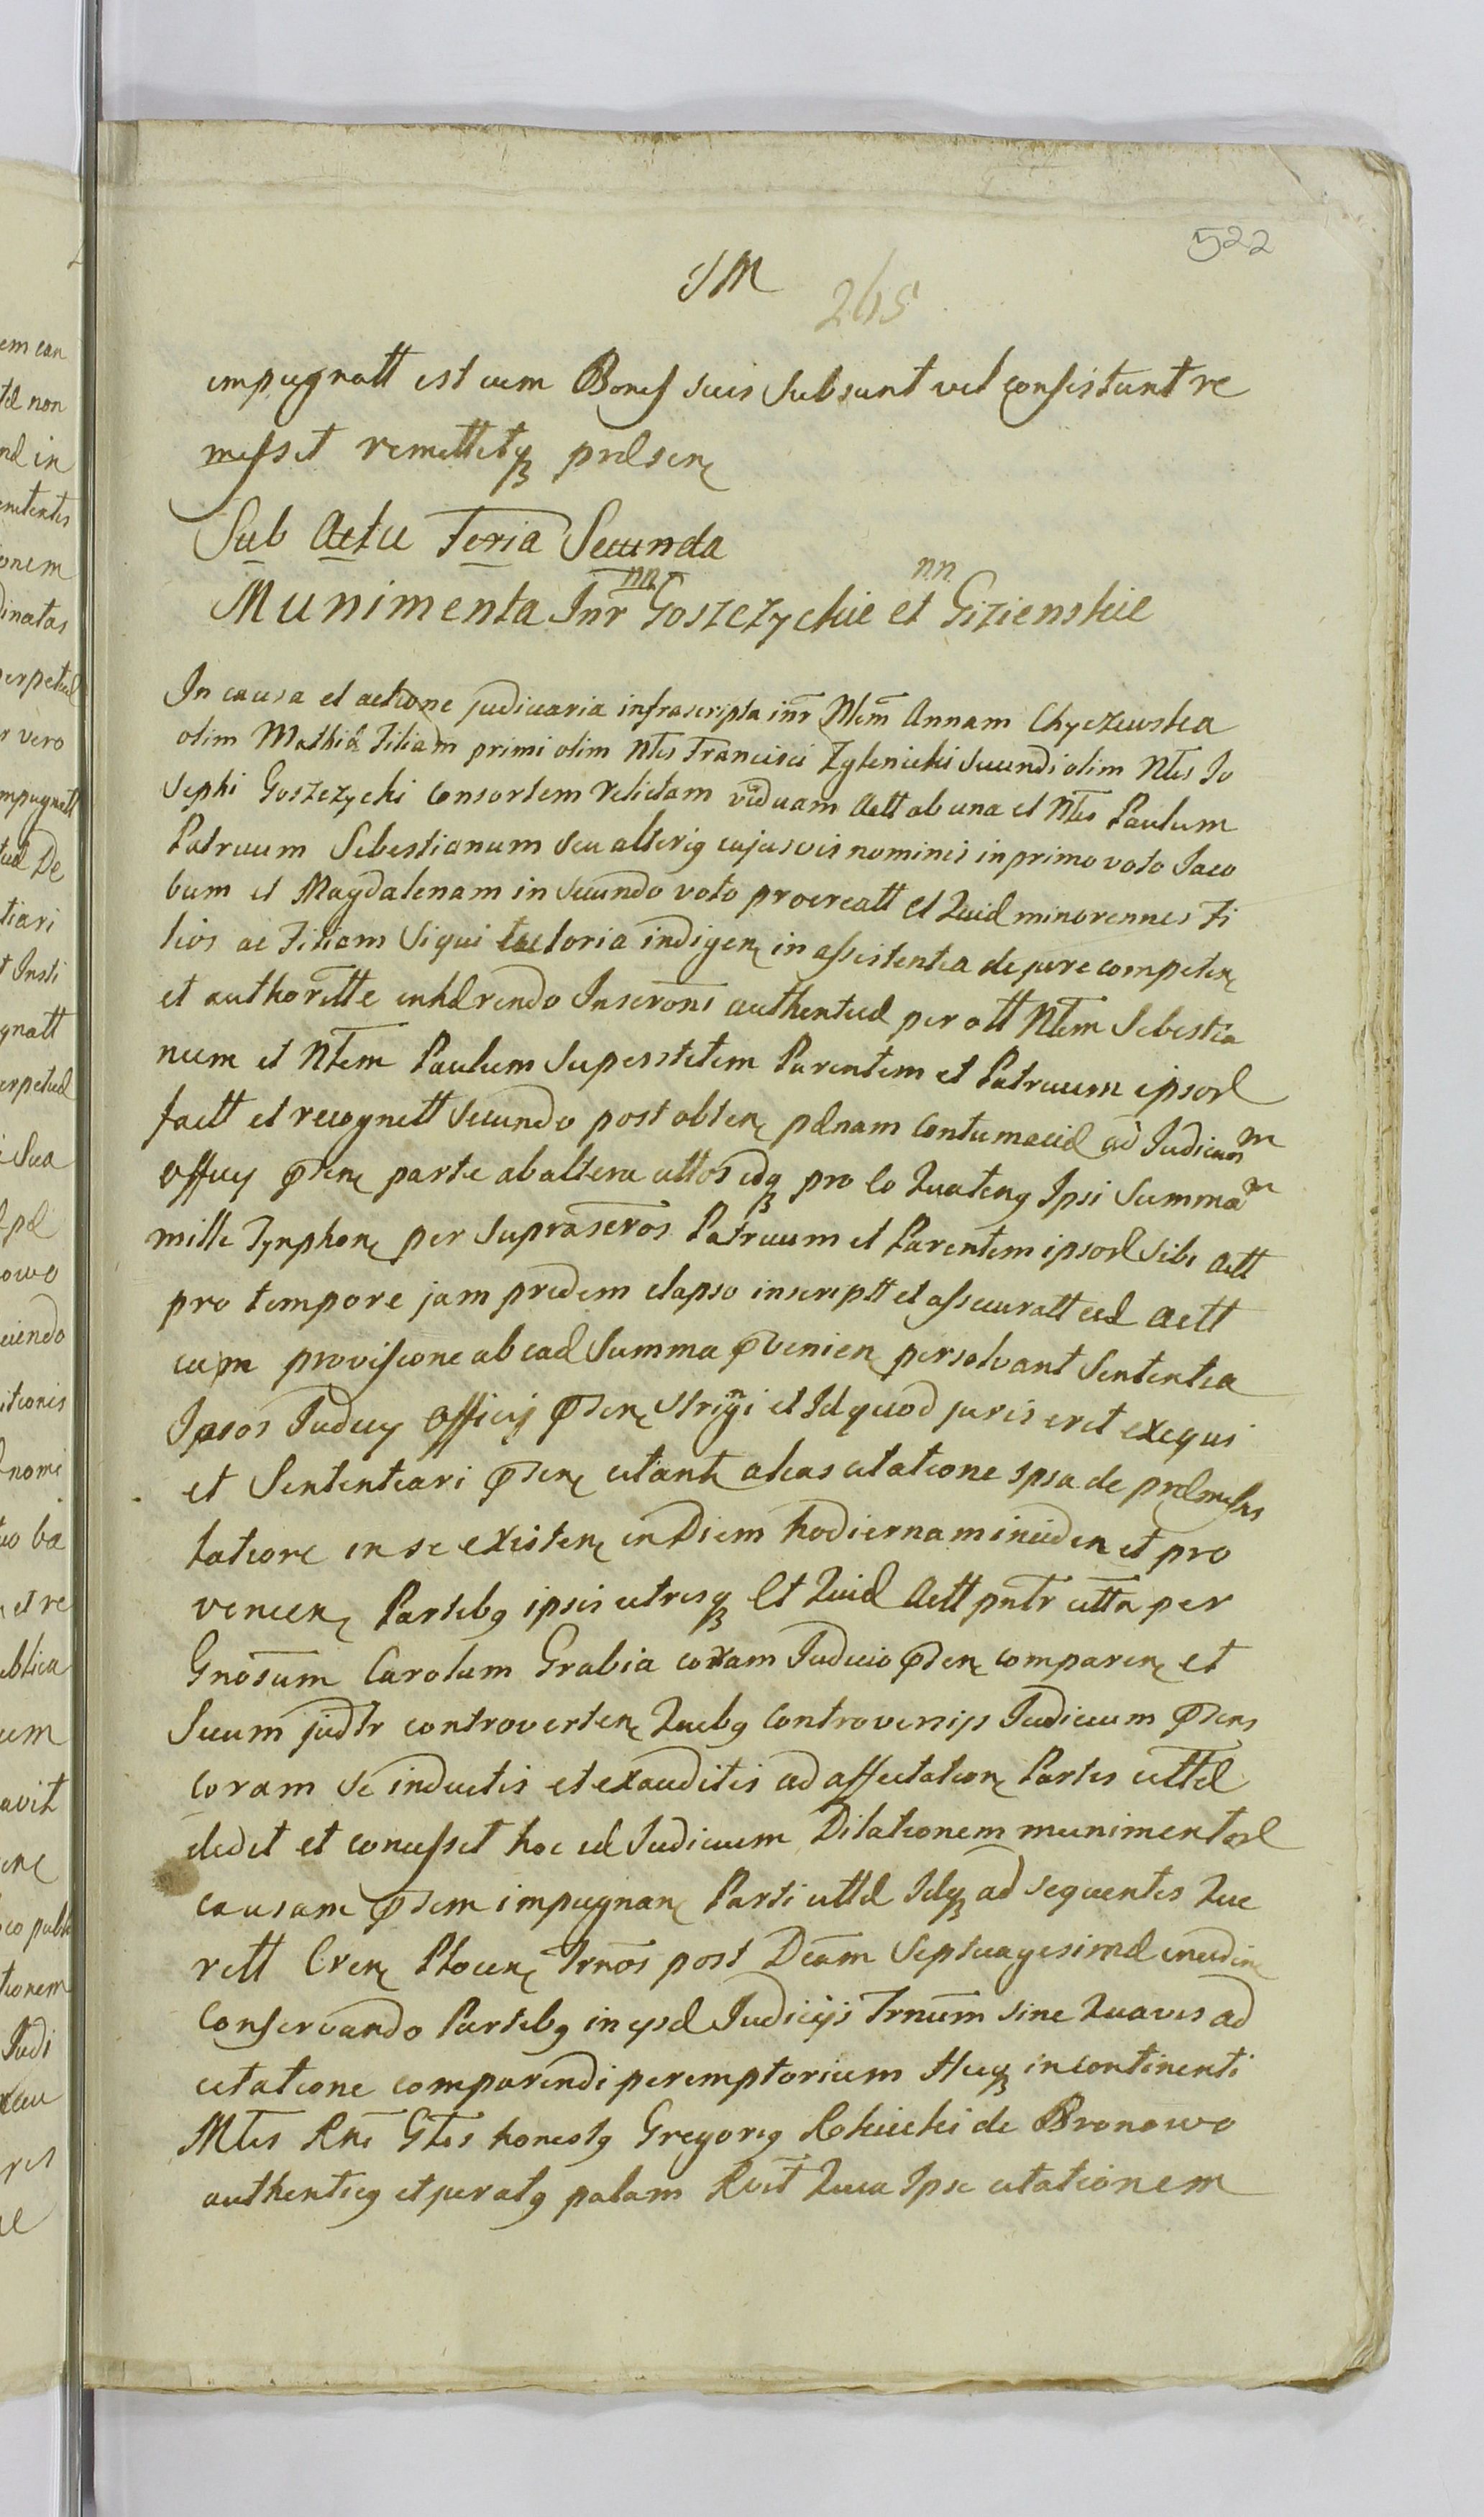 522
JM
265
impugnatt est cum Bonis suis subsunt vel consistunt re
misset remittitq prdsen
Sub Actu Feria Secunda
Munimenta Inr nn Goszczyckie et nn Gizienskie
In causa et actione judiciaria infrascripta inr Ntem Annam Chyczewska
olim Mathia Filiam primi olim Ntis Francisci Zglenicki secundi olim Ntis Jo
sephi Goszczycki Consortem relictam viduam Actt ab una et Ntes Paulum
Patruum Sebestianum seu alterig cujusvis nominis in primo voto Jaco
bum et Magdalenam in secundo voto procreatt et Quid minorennes Fi
lios ac Filiam siqui tutoria indigen in assistentia de jure competen
et authoritte inhdrendo Inscroni authenticd per att Ntem Sebestia
num et Ntem Paulum superstitem Parentem et Patruum ipsord
factt et recognitt secundo post obten pdnam Contumacid ad Judicium
Officy psen parte ab altera cittos idq pro eo Quateng Ipsi Summam
mille Tynphon per suprascros Patruum et Parentem ipsord sibi Actt
pro tempore jam pridem elapso inscriptt et assecuratt eid Actt
cum provisione ab ead Summa pvenien persolvant Sententia
Ipsos Judicy Officij psen stringi et Id quod juris erit exequi
et Sententiari psen citant alias citatione ipsa de prdmissis
latiore in se existen in Diem hodiernam inciden et pro
venien Partibg ipsis utrisq Et Quid Actt pntr citta per
Gnosum Carolum Grabia coram Judicio psen comparen et
suum judtr controverten Quibg Controversijs Judicium psens
coram se inductis et exauditis ad affectation Partis cittd
dedit et concesset hoc id Judicium Dilationem munimentord
causam psem impugnan Parti cittd Idq ad sequentes Que
rell Cren Plocen Trnos post Dcam Septuagesimd inciden
Conservando Partibg in ysd Judicijs Trnum sine Quavis ad
citatione comparendi peremptorium Hucq incontinenti
Mtis Rni Gtis honestg Gregorig Rokicki de Bronowo
authenticg et juratg palam Rvit Quia Ipse citationem